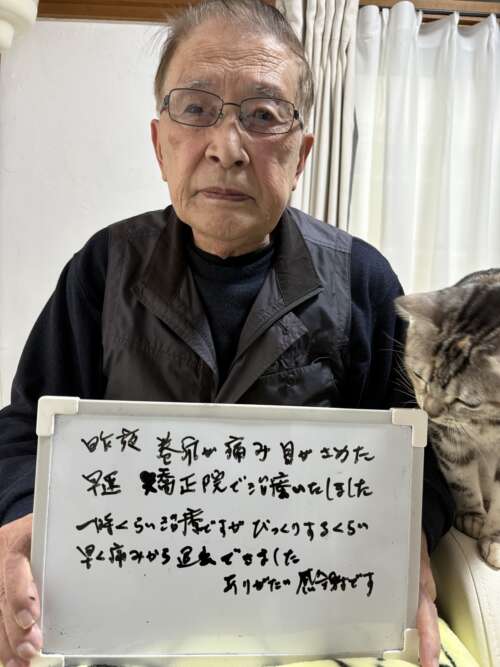 昨夜 巻爪が痛み 目がさめた
早速 矯正院で治療いたしました
一時くらい治療ですが びっくりするくらい
早く痛みから できました
ありがたい 感謝です